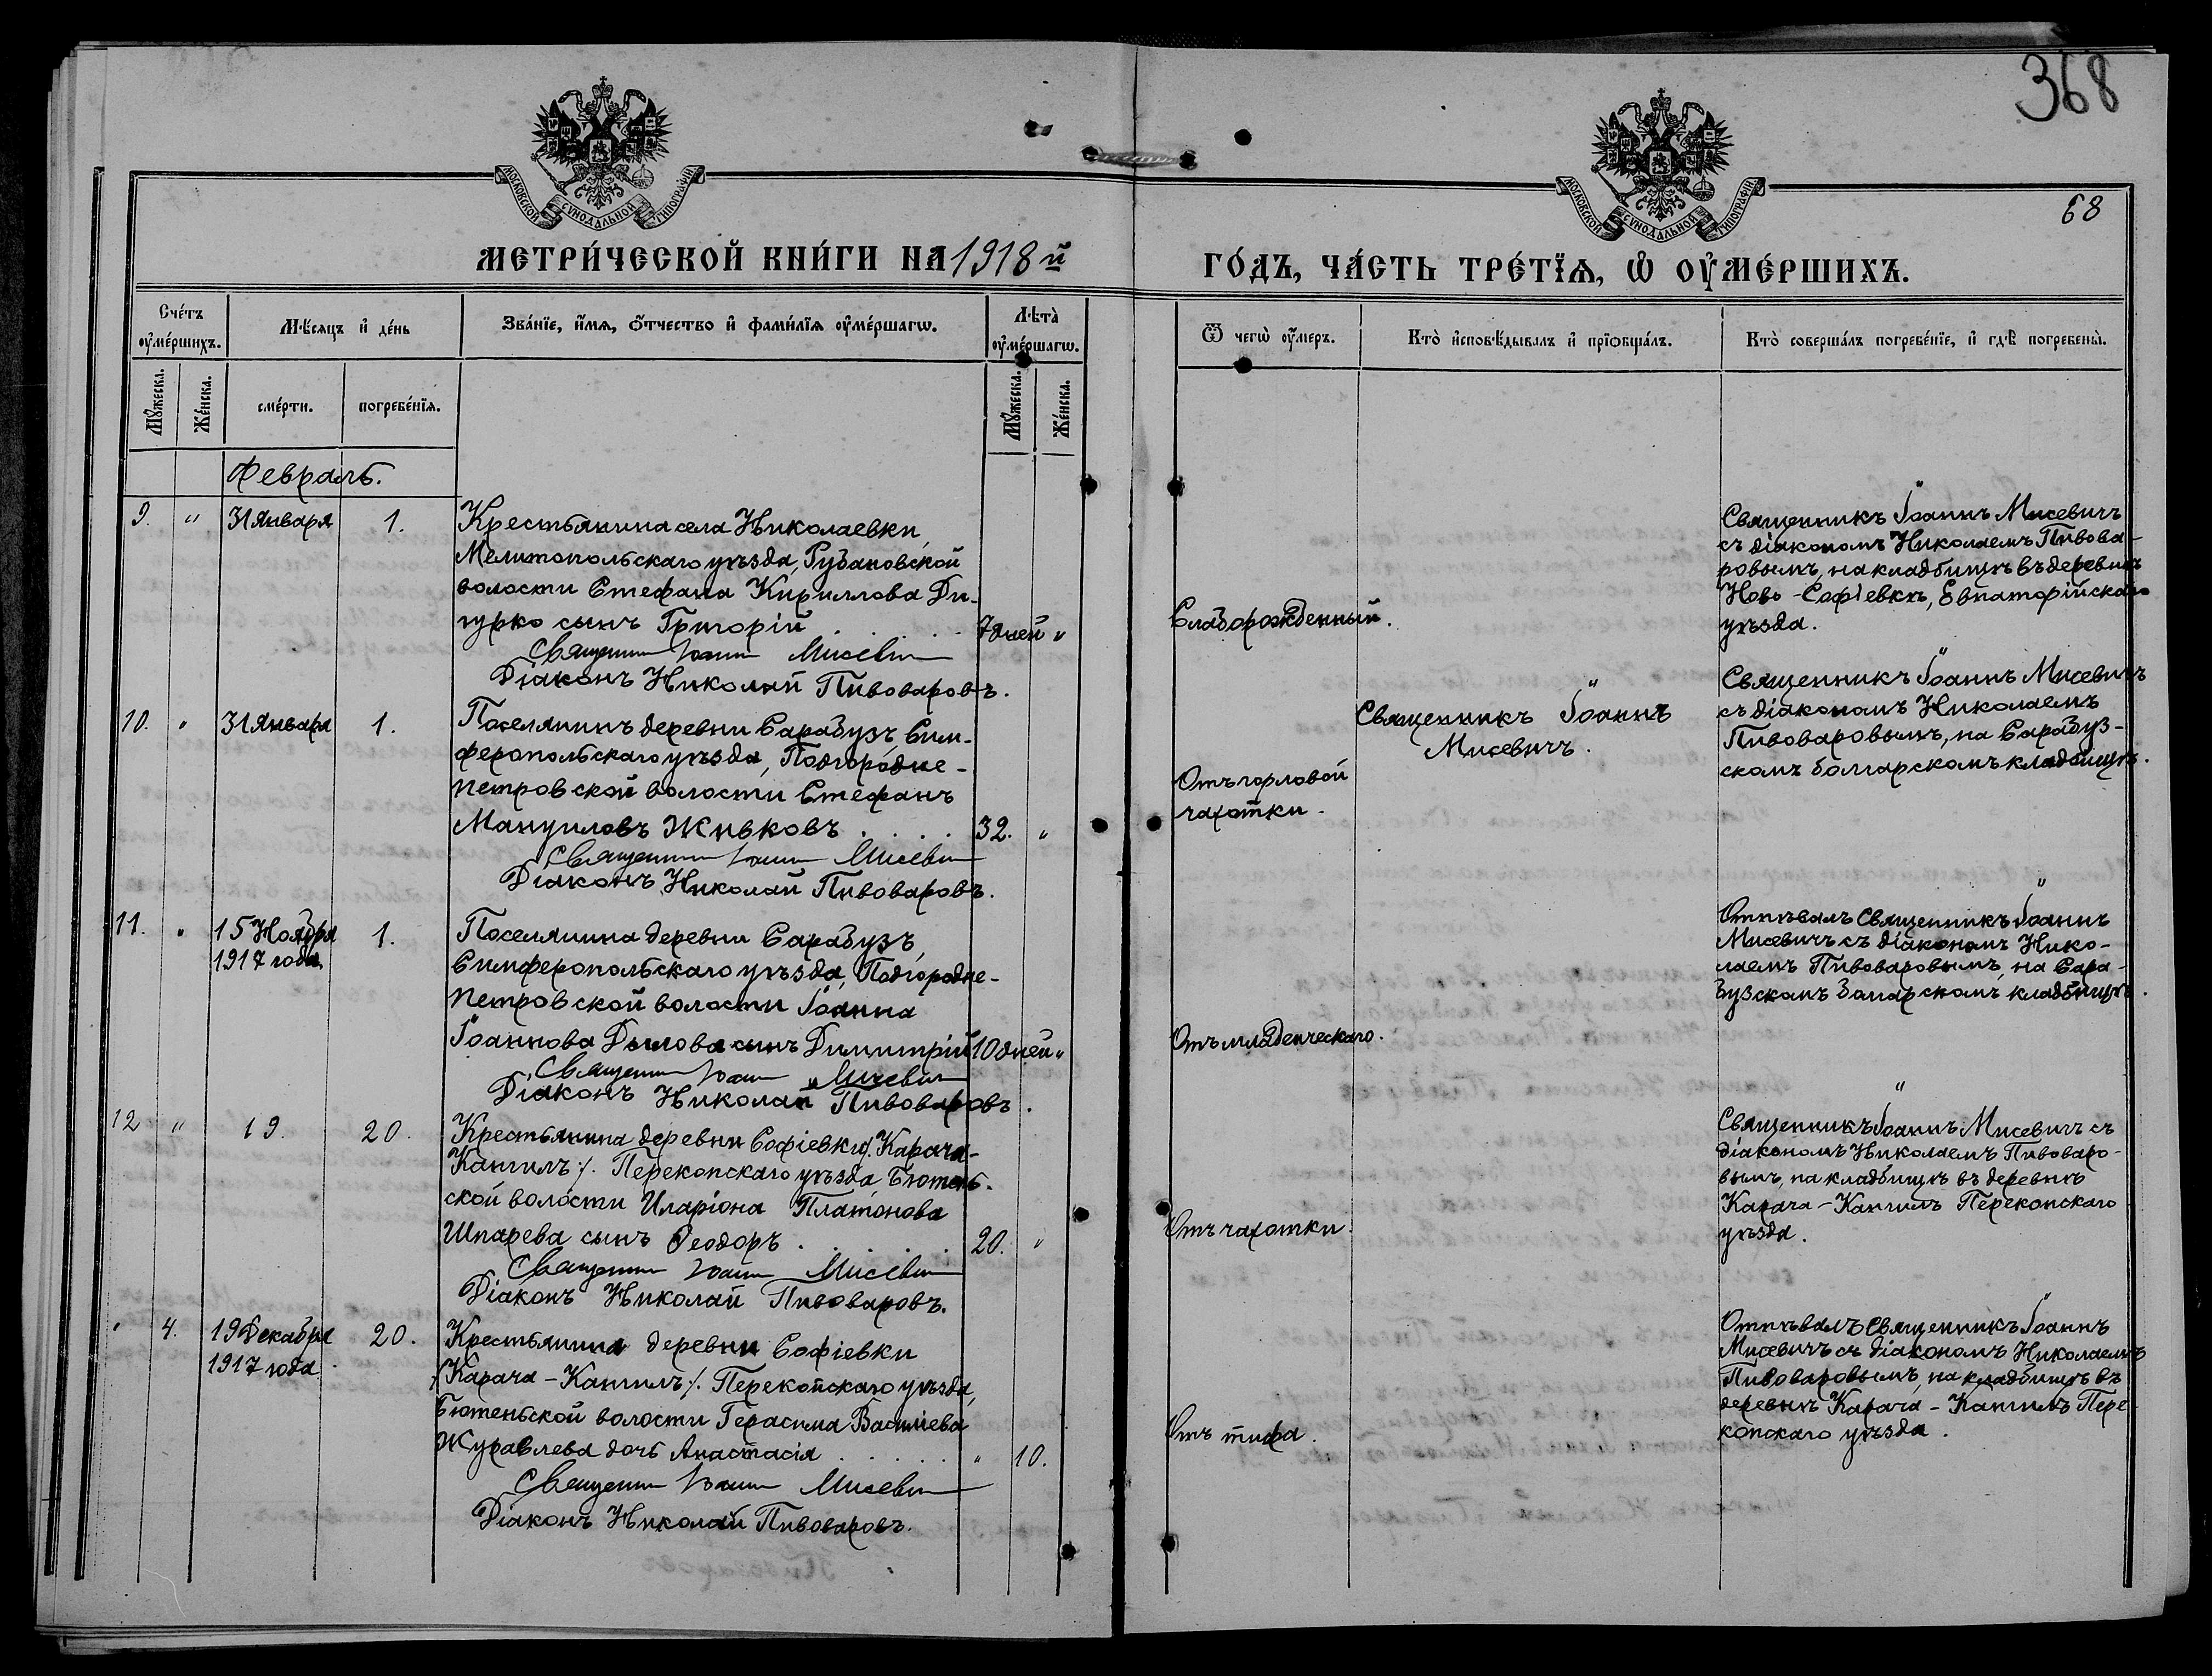 368
68
МОСКОВСКОЙ СѴНОДАЛЬНОЙ ТИПОГРАФІИ
МОСКОВСКОЙ СѴНОДАЛЬНОЙ ТИПОГРАФІИ
МЕТРИ́ЧЕСКОЙ КНИ́ГИ НА 1918й ГО́ДЪ, ЧА́СТЬ ТРЕ́ТЇѦ, Ѡ ОУМЕ́РШИХЪ.
Сче́тъ оумершихъ.
Мѣсяцъ и де́нь
Зва́нїе, и́мя, о́тчество и фами́лїя оуме́ршагѡ.
Лѣта̀ оуме́ршагѡ.
Ѿ чегѡ̀ оу́меръ.
Кто̀ и҆сповѣ́дывалъ и҆ прїѡбща́лъ.
Кто̀ соверша́лъ погребе́нїе, и҆ гдѣ̀ погребены̀.
Му́жеска.
Же́нска.
сме́рти.
погребе́нїя.
Му́жеска.
Же́нска.
Февраль.
9. " 31 Января 1.
Крестьянина села Николаевки,
Мелитопольскаго уѣзда, Рубановской
волости Стефана Кириллова Ди-
гурко сынъ Григорій . . . . 7 дней "
Священникъ Іоаннъ Мисевичъ
Діаконъ Николай Пивоваровъ.
Слаборожденный.
Священникъ Іоаннъ Мисевичъ
съ діакономъ Николаемъ Пивова-
ровымъ, на кладбищѣ въ деревнѣ
Ново-Софіевкѣ, Евпаторійскаго
уѣзда.
10. " 31 Января 1.
Поселянинъ деревни Сарабузъ Сим-
феропольскаго уѣзда, Подгородне-
Петровской волости Стефанъ
Мануиловъ Живковъ . . . . 32. "
Священникъ Іоаннъ Мисевичъ
Діаконъ Николай Пивоваровъ.
Отъ горловой
чахотки.
Священникъ Іоаннъ
Мисевичъ.
Священникъ Іоаннъ Мисевичъ
съ діакономъ Николаемъ
Пивоваровымъ, на Сарабуз-
скомъ болгарскомъ кладбищѣ.
11. " 15 Ноября 1.
1917 года.
Поселянина деревни Сарабузъ,
Симферопольскаго уѣзда, Подгородне-
Петровской волости Іоанна
Іоаннова Дылова сынъ Димитрій 10 дней "
Священникъ Іоаннъ Мисевичъ
Діаконъ Николай Пивоваровъ.
Отъ младенческаго.
Отпѣвалъ Священникъ Іоаннъ
Мисевичъ съ діакономъ Нико-
лаемъ Пивоваровымъ, на Сара-
бузскомъ болгарскомъ кладбищѣ.
12 " 19. 20.
Крестьянина деревни Софіевки /: Карача-
Кангилъ :/. Перекопскаго уѣзда, Бютень-
ской волости Иларіона Платонова
Шпарева сынъ Ѳеодоръ . . . . 20. "
Священникъ Іоаннъ Мисевичъ
Діаконъ Николай Пивоваровъ.
Отъ чахотки.
Священникъ Іоаннъ Мисевичъ съ
діакономъ Николаемъ Пивоваро-
вымъ, на кладбищѣ въ деревнѣ
Карача-Кангилъ Перекопскаго
уѣзда.
" 4. 19 Декабря 20.
1917 года.
Крестьянина деревни Софіевки
/: Карача-Кангилъ :/. Перекопскаго уѣзда,
Бютеньской волости Герасима Васильева
Журавлева дочь Анастасія . . . . " 10.
Священникъ Іоаннъ Мисевичъ
Діаконъ Николай Пивоваровъ.
Отъ тифа.
Отпѣвалъ Священникъ Іоаннъ
Мисевичъ съ діакономъ Николаемъ
Пивоваровымъ, на кладбищѣ въ
деревнѣ Карача-Кангилъ Пере-
копскаго уѣзда.